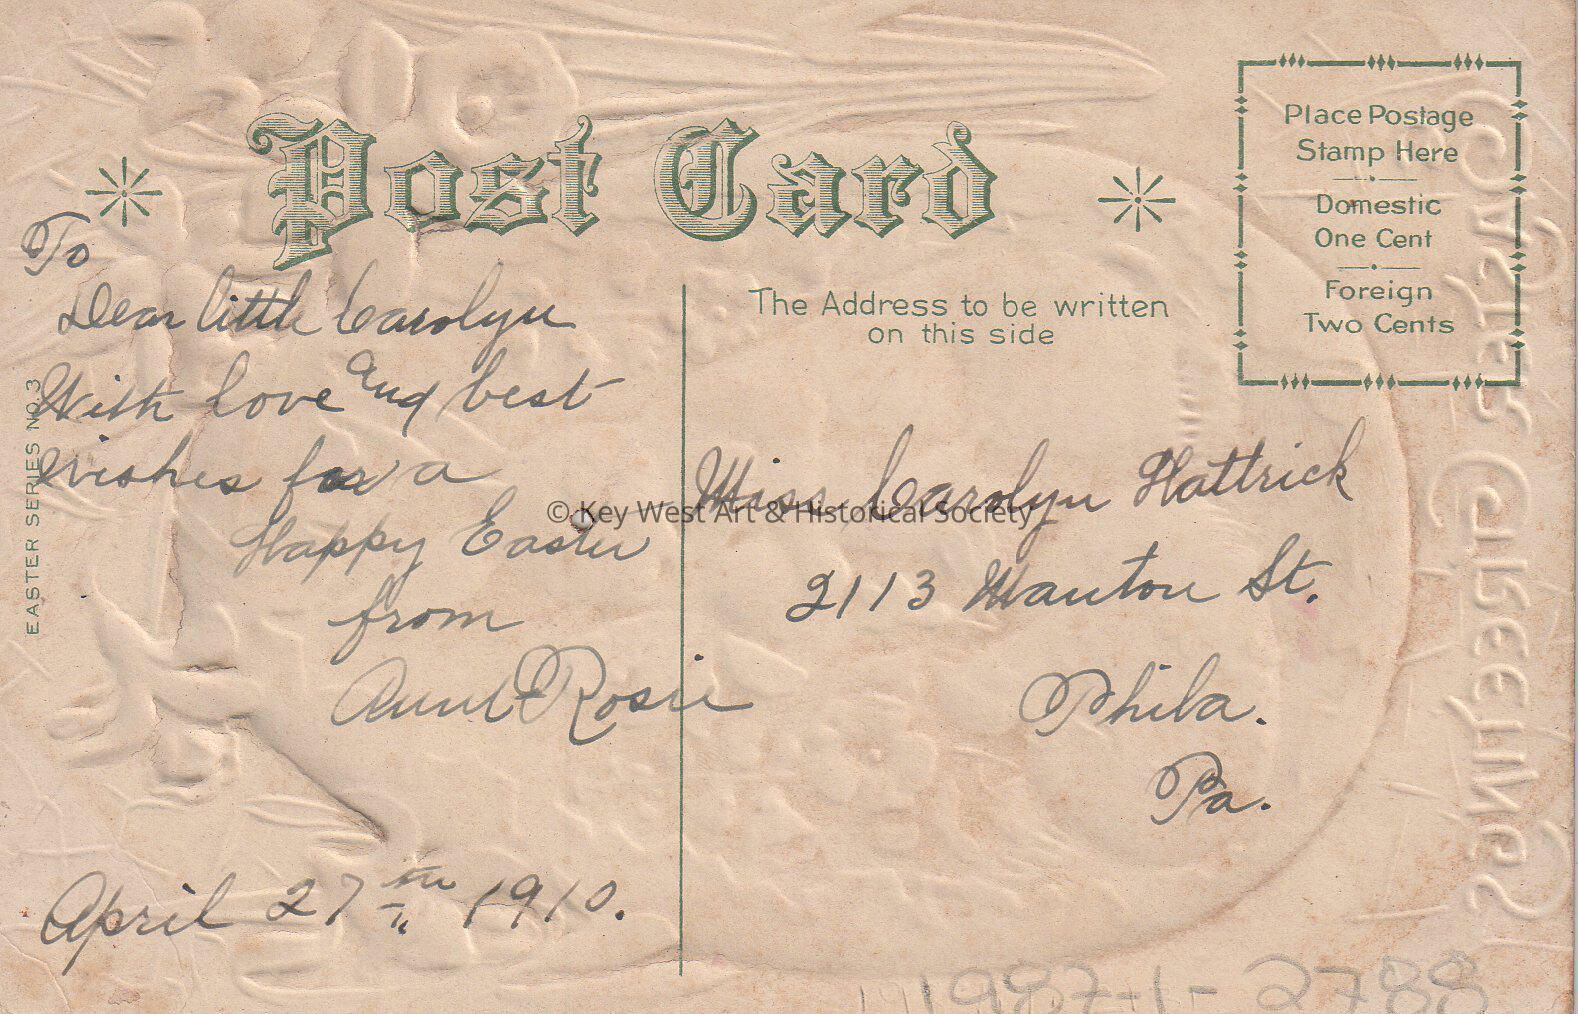 Post Card
Place Postage
Stamp Here
Domestic
One Cent
Foreign
Two Cents
The Address to be written
on this side
EASTER SERIES NO. 3
To
Dear little Carolyn
With love and best
wishes for a
Happy Easter
from
Aunt Rosie
April 27th 1910.
Miss Carolyn Hattrick
2113 Manton St.
Phila.
Pa.
© Key West Art & Historical Society
EASTER GREETINGS
1987-1-2788